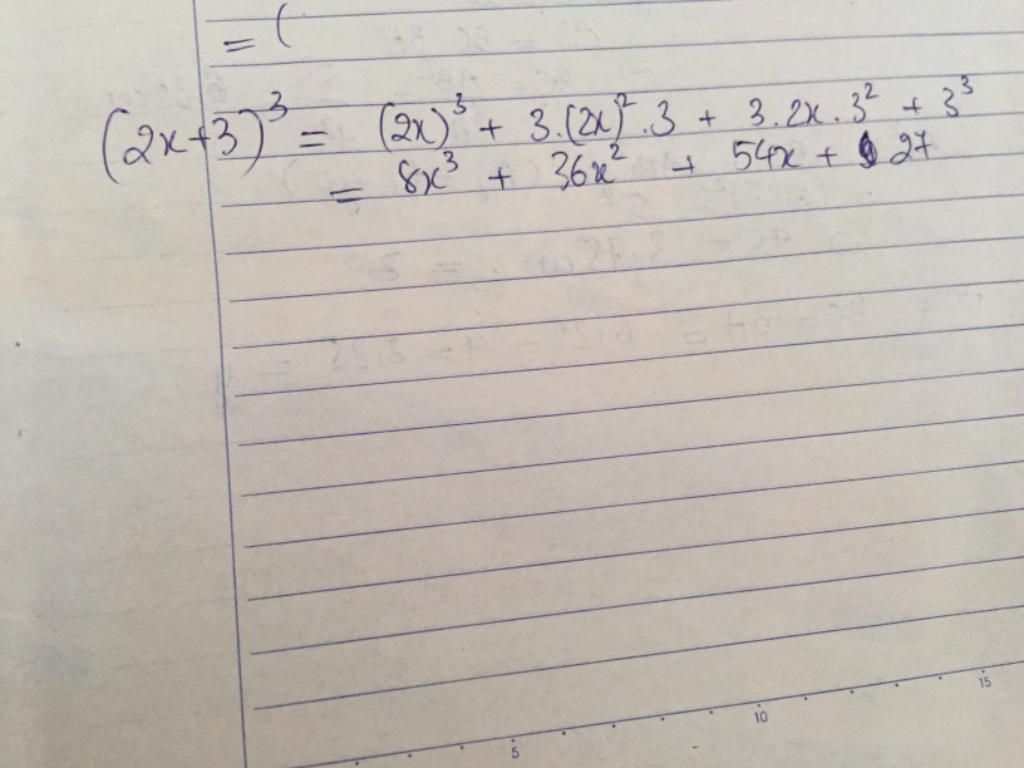 = (
(2x+3)³ = (2x)³ + 3.(2x)².3 + 3.2x.3² + 3³
= 8x³ + 36x² + 54x + 27
5 10 15